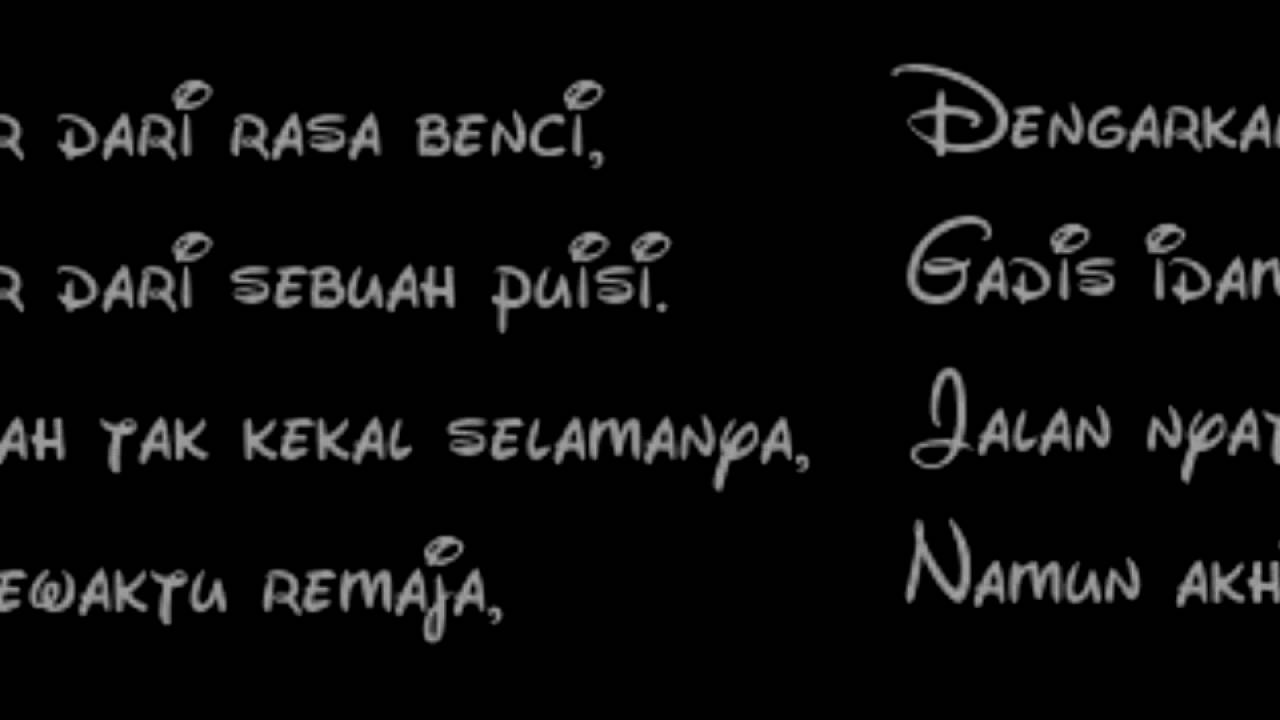 R dari rasa benci,
R dari sebuah puisi.
ah tak kekal selamanya,
ewaktu remaja,
Dengarka
Gadis idam
Jalan nyat
Namun akh